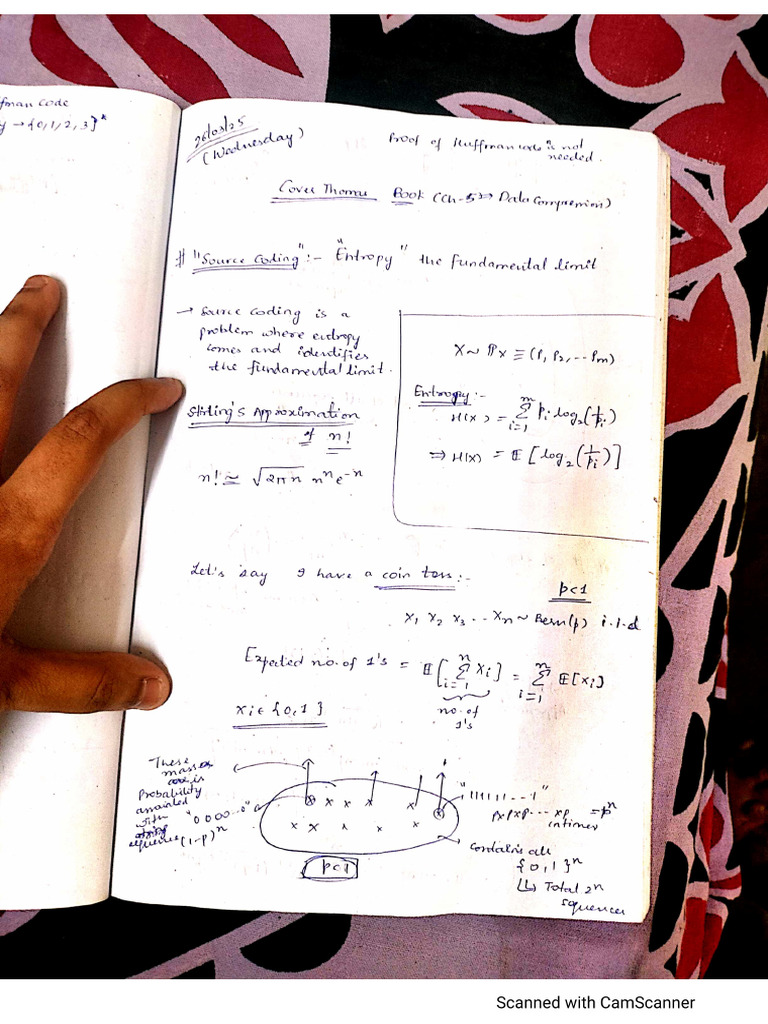 ffman Code
y → {0,1,2,3}*
26/03/25
(Wednesday)
Proof of Huffman code is not
needed.
Cover Thomas Book (Ch-5 → Data Compression)
# "Source Coding" :- "Entropy" the fundamental limit
→ Source coding is a
problem where entropy
comes and identifies
the fundamental limit.
X ~ ℙx ≡ (p₁, p₂, ... pm)
Entropy :-
H(X) = Σ_{i=1}^{m} pi log₂(1/pi)
⇒ H(X) = 𝔼[log₂(1/pi)]
Stirling's Approximation
of n!
n! ≃ √(2πn) nⁿ e⁻ⁿ
Let's say I have a coin toss :-
p<1
X₁ X₂ X₃ ... Xn ~ Bern(p) i.i.d
Expected no. of 1's = 𝔼[Σ_{i=1}^{n} Xi] = Σ_{i=1}^{n} 𝔼[Xi]
no. of
1's
Xi ∈ {0,1}
These
masses
is
Probability
with
sequences
"0000...0"
(1-p)ⁿ
"111111...1"
p×p×p... ×p = pⁿ
n times
Contains all
{0,1}ⁿ
↳ Total 2ⁿ
sequences
p<1
Scanned with CamScanner